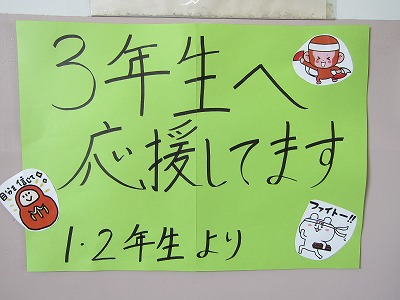 3年生へ
応援してます
自分を信じて。
ファイトー!!
1・2年生より